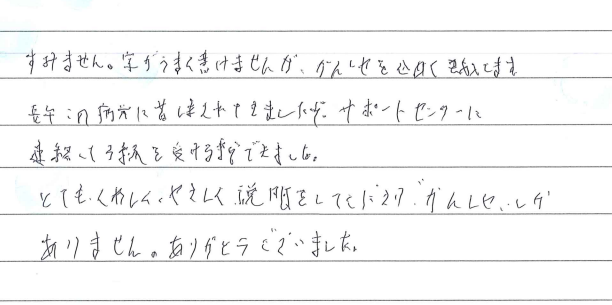 すみません。字がうまく書けませんが、かんしゃを込めて
長年この病気に苦しまされてきましたが、サポートセンターに
連絡して手術を受ける事ができました。
とてもくわしく、やさしく説明をしてくださり、かんしゃしか
ありません。ありがとうございました。